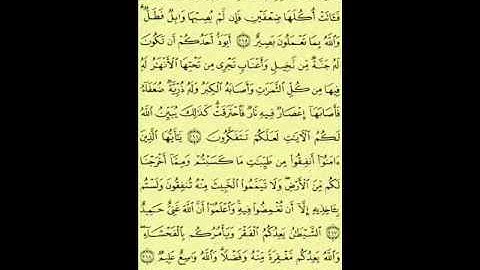 فَـَٔاتَتْ أُكُلَهَا ضِعْفَيْنِ فَإِن لَّمْ يُصِبْهَا وَابِلٌ فَطَلٌّ ۗ
وَٱللَّهُ بِمَا تَعْمَلُونَ بَصِيرٌ ٢٦٥ أَيَوَدُّ أَحَدُكُمْ أَن تَكُونَ
لَهُۥ جَنَّةٌ مِّن نَّخِيلٍ وَأَعْنَابٍ تَجْرِى مِن تَحْتِهَا ٱلْأَنْهَٰرُ لَهُۥ
فِيهَا مِن كُلِّ ٱلثَّمَرَٰتِ وَأَصَابَهُ ٱلْكِبَرُ وَلَهُۥ ذُرِّيَّةٌ ضُعَفَآءُ
فَأَصَابَهَآ إِعْصَارٌ فِيهِ نَارٌ فَٱحْتَرَقَتْ ۗ كَذَٰلِكَ يُبَيِّنُ ٱللَّهُ
لَكُمُ ٱلْءَايَٰتِ لَعَلَّكُمْ تَتَفَكَّرُونَ ٢٦٦ يَٰٓأَيُّهَا ٱلَّذِينَ
ءَامَنُوٓا۟ أَنفِقُوا۟ مِن طَيِّبَٰتِ مَا كَسَبْتُمْ وَمِمَّآ أَخْرَجْنَا
لَكُم مِّنَ ٱلْأَرْضِ ۖ وَلَا تَيَمَّمُوا۟ ٱلْخَبِيثَ مِنْهُ تُنفِقُونَ وَلَسْتُم
بِـَٔاخِذِيهِ إِلَّآ أَن تُغْمِضُوا۟ فِيهِ ۚ وَٱعْلَمُوٓا۟ أَنَّ ٱللَّهَ غَنِىٌّ حَمِيدٌ
٢٦٧ ٱلشَّيْطَٰنُ يَعِدُكُمُ ٱلْفَقْرَ وَيَأْمُرُكُم بِٱلْفَحْشَآءِ ۖ
وَٱللَّهُ يَعِدُكُم مَّغْفِرَةً مِّنْهُ وَفَضْلًا ۗ وَٱللَّهُ وَٰسِعٌ عَلِيمٌ ٢٦٨